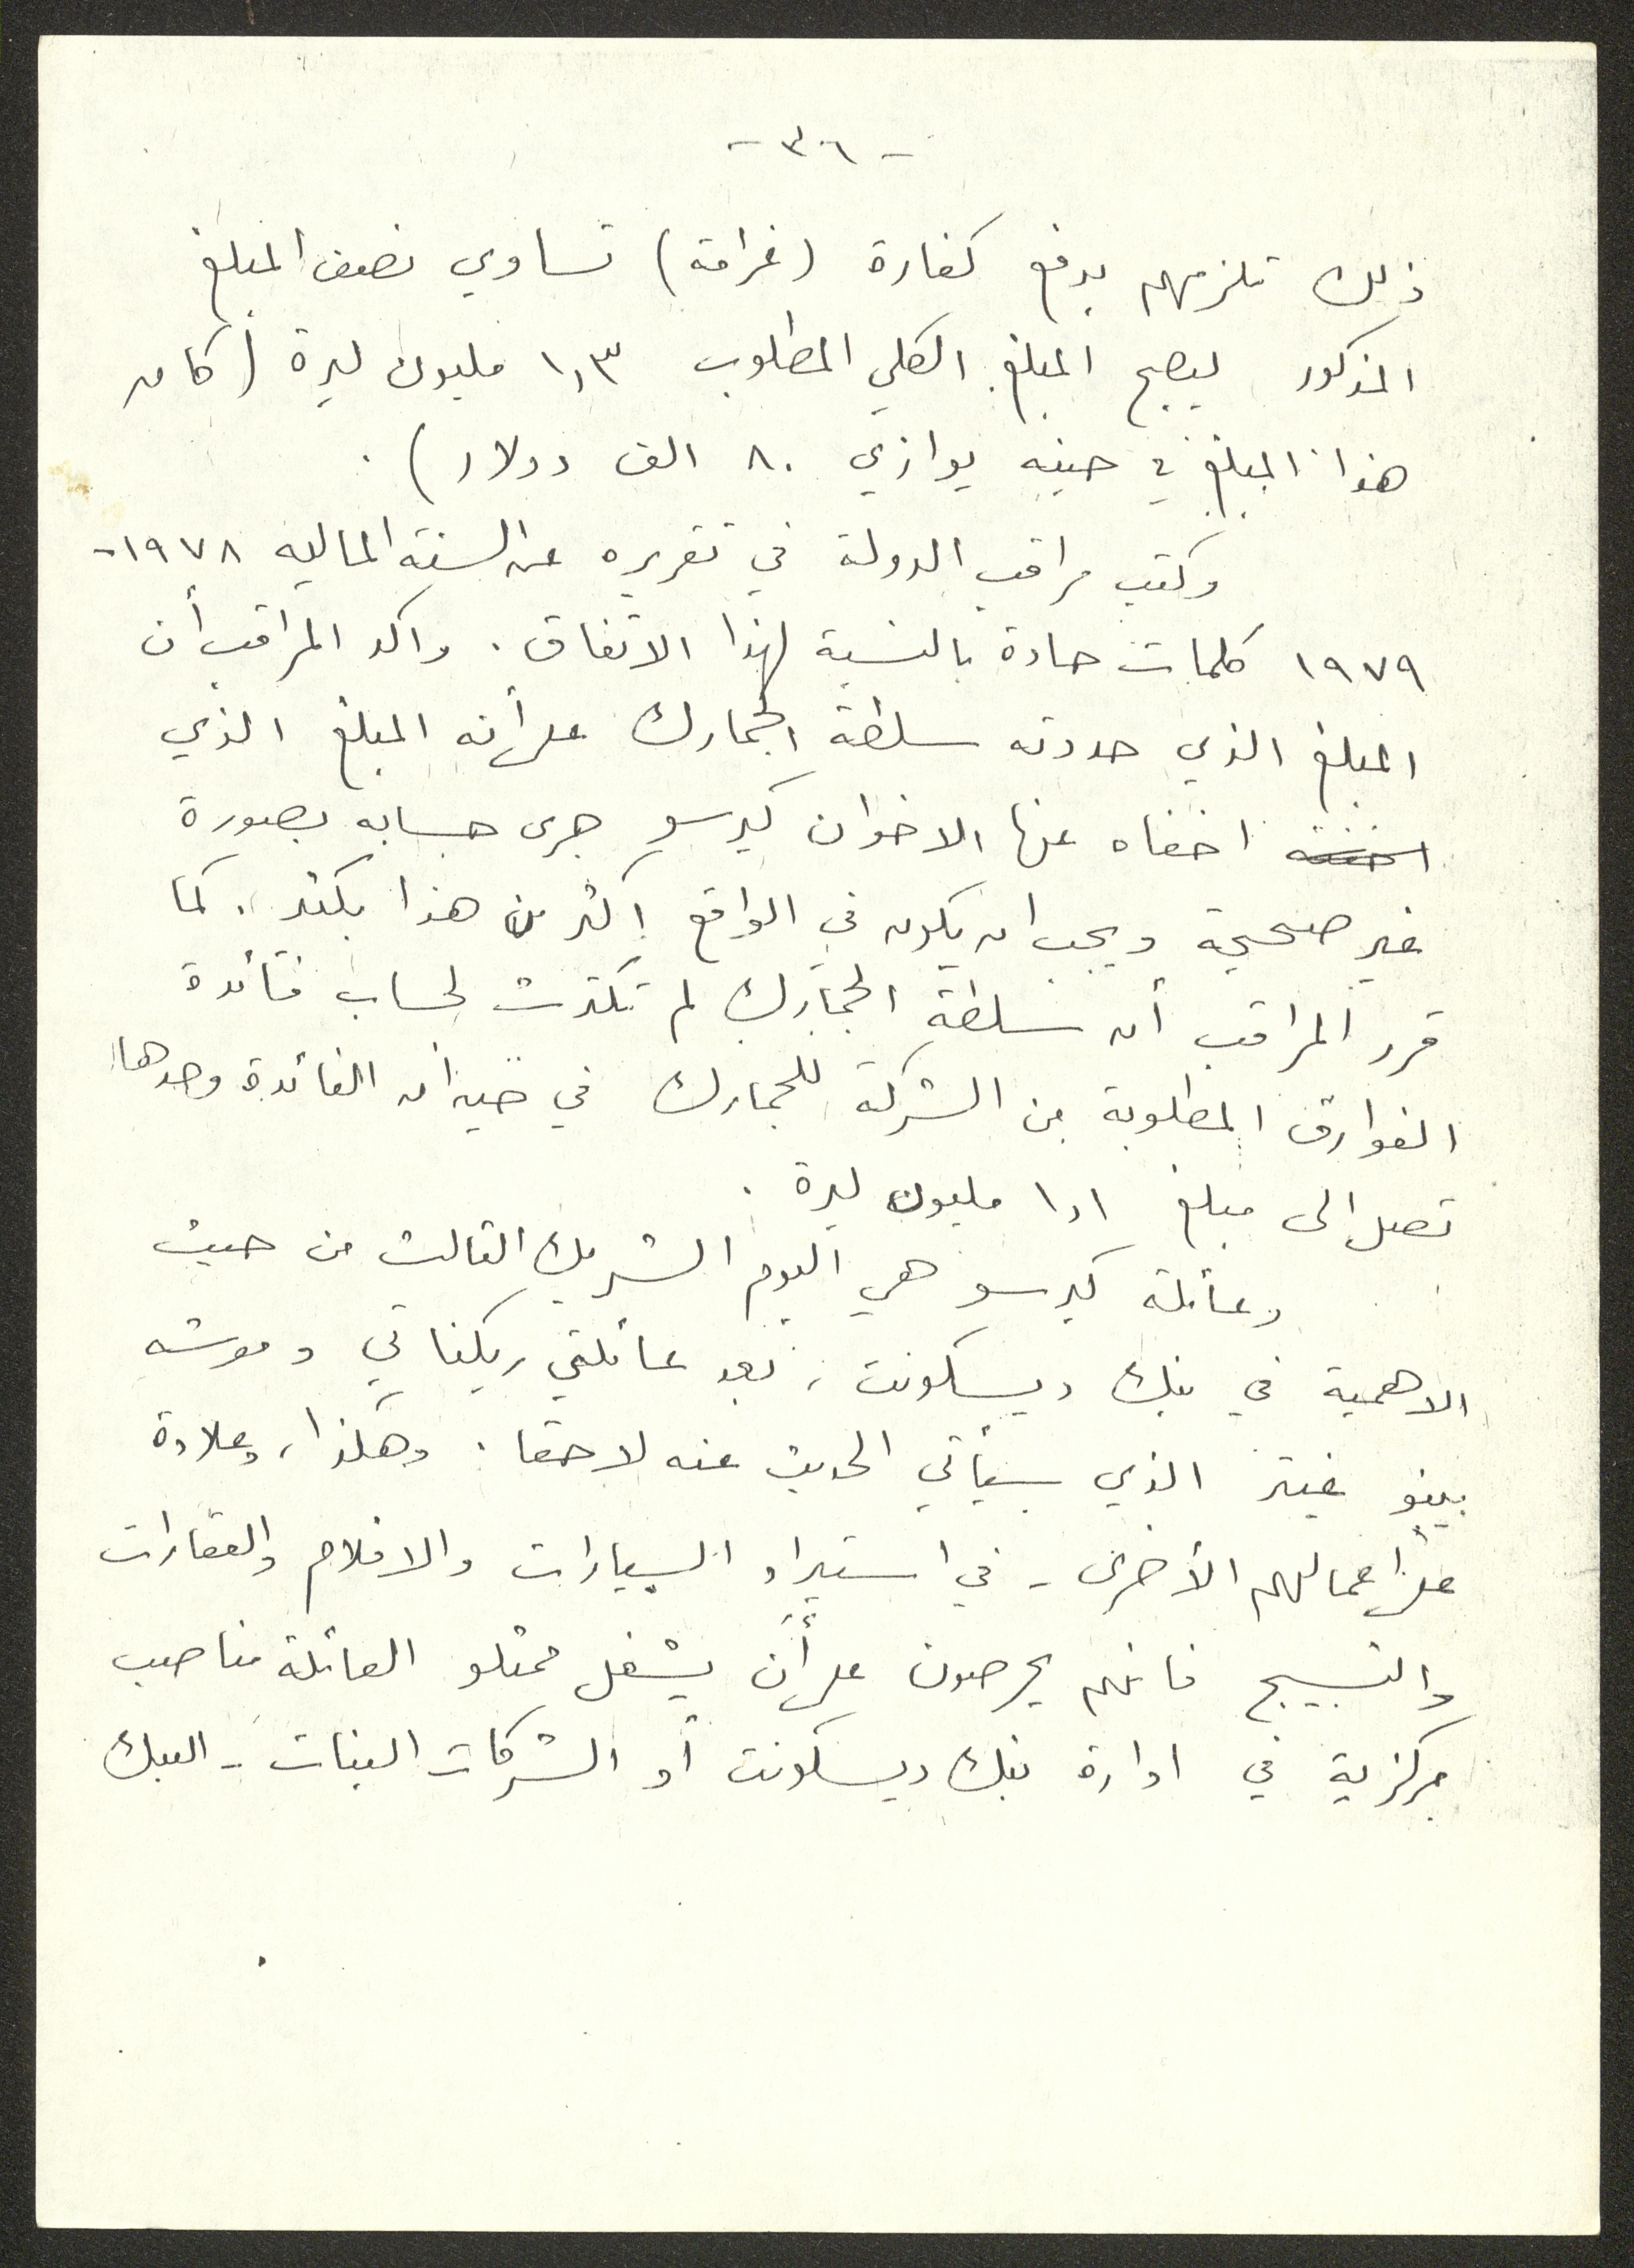 - ٣٠٦ -
ذلك تلزمهم بدفع كفارة (غرامة) تساوي نصف المبلغ
المذكور ليصبح المبلغ الكلي المطلوب ١،٣ مليون ليرة (كان
هذا المبلغ في حينه يوازي ٨٠ الف دولار) .
وكتب مراقب الدولة في تقريره عن السنة المالية ١٩٧٨-
١٩٧٩ كلمات حادة بالنسبة لهذا الاتفاق . واكد المراقب أن
المبلغ الذي حددته سلطة الجمارك على أنه المبلغ الذي
اخفاه عنها الاخوان كيرسو جرى حسابه بصورة
غير صحيحة ويجب ان يكون في الواقع اكثر من هذا بكثير . كما
قرر المراقب أن سلطة الجمارك لم تكترث لحساب فائدة
الفوارق المطلوبة من الشركة للجمارك في حين أن الفائدة وحدها
تصل الى مبلغ ١،١ مليون ليرة .
وعائلة كيرسو هي اليوم الشريك الثالث من حيث
الاهمية في بنك ديسكونت ، بعد عائلتي ريكناتي وموشه
بينو غيتر الذي سيأتي الحديث عنه لاحقا . وهكذا ، وعلاوة
على أعمالهم الأخرى - في استيراد السيارات والافلام والعقارات
والنسيج فانهم يحرصون على أن يشغل ممثلو العائلة مناصب
مركزية في ادارة بنك ديسكونت أو الشركات البنات - البنك